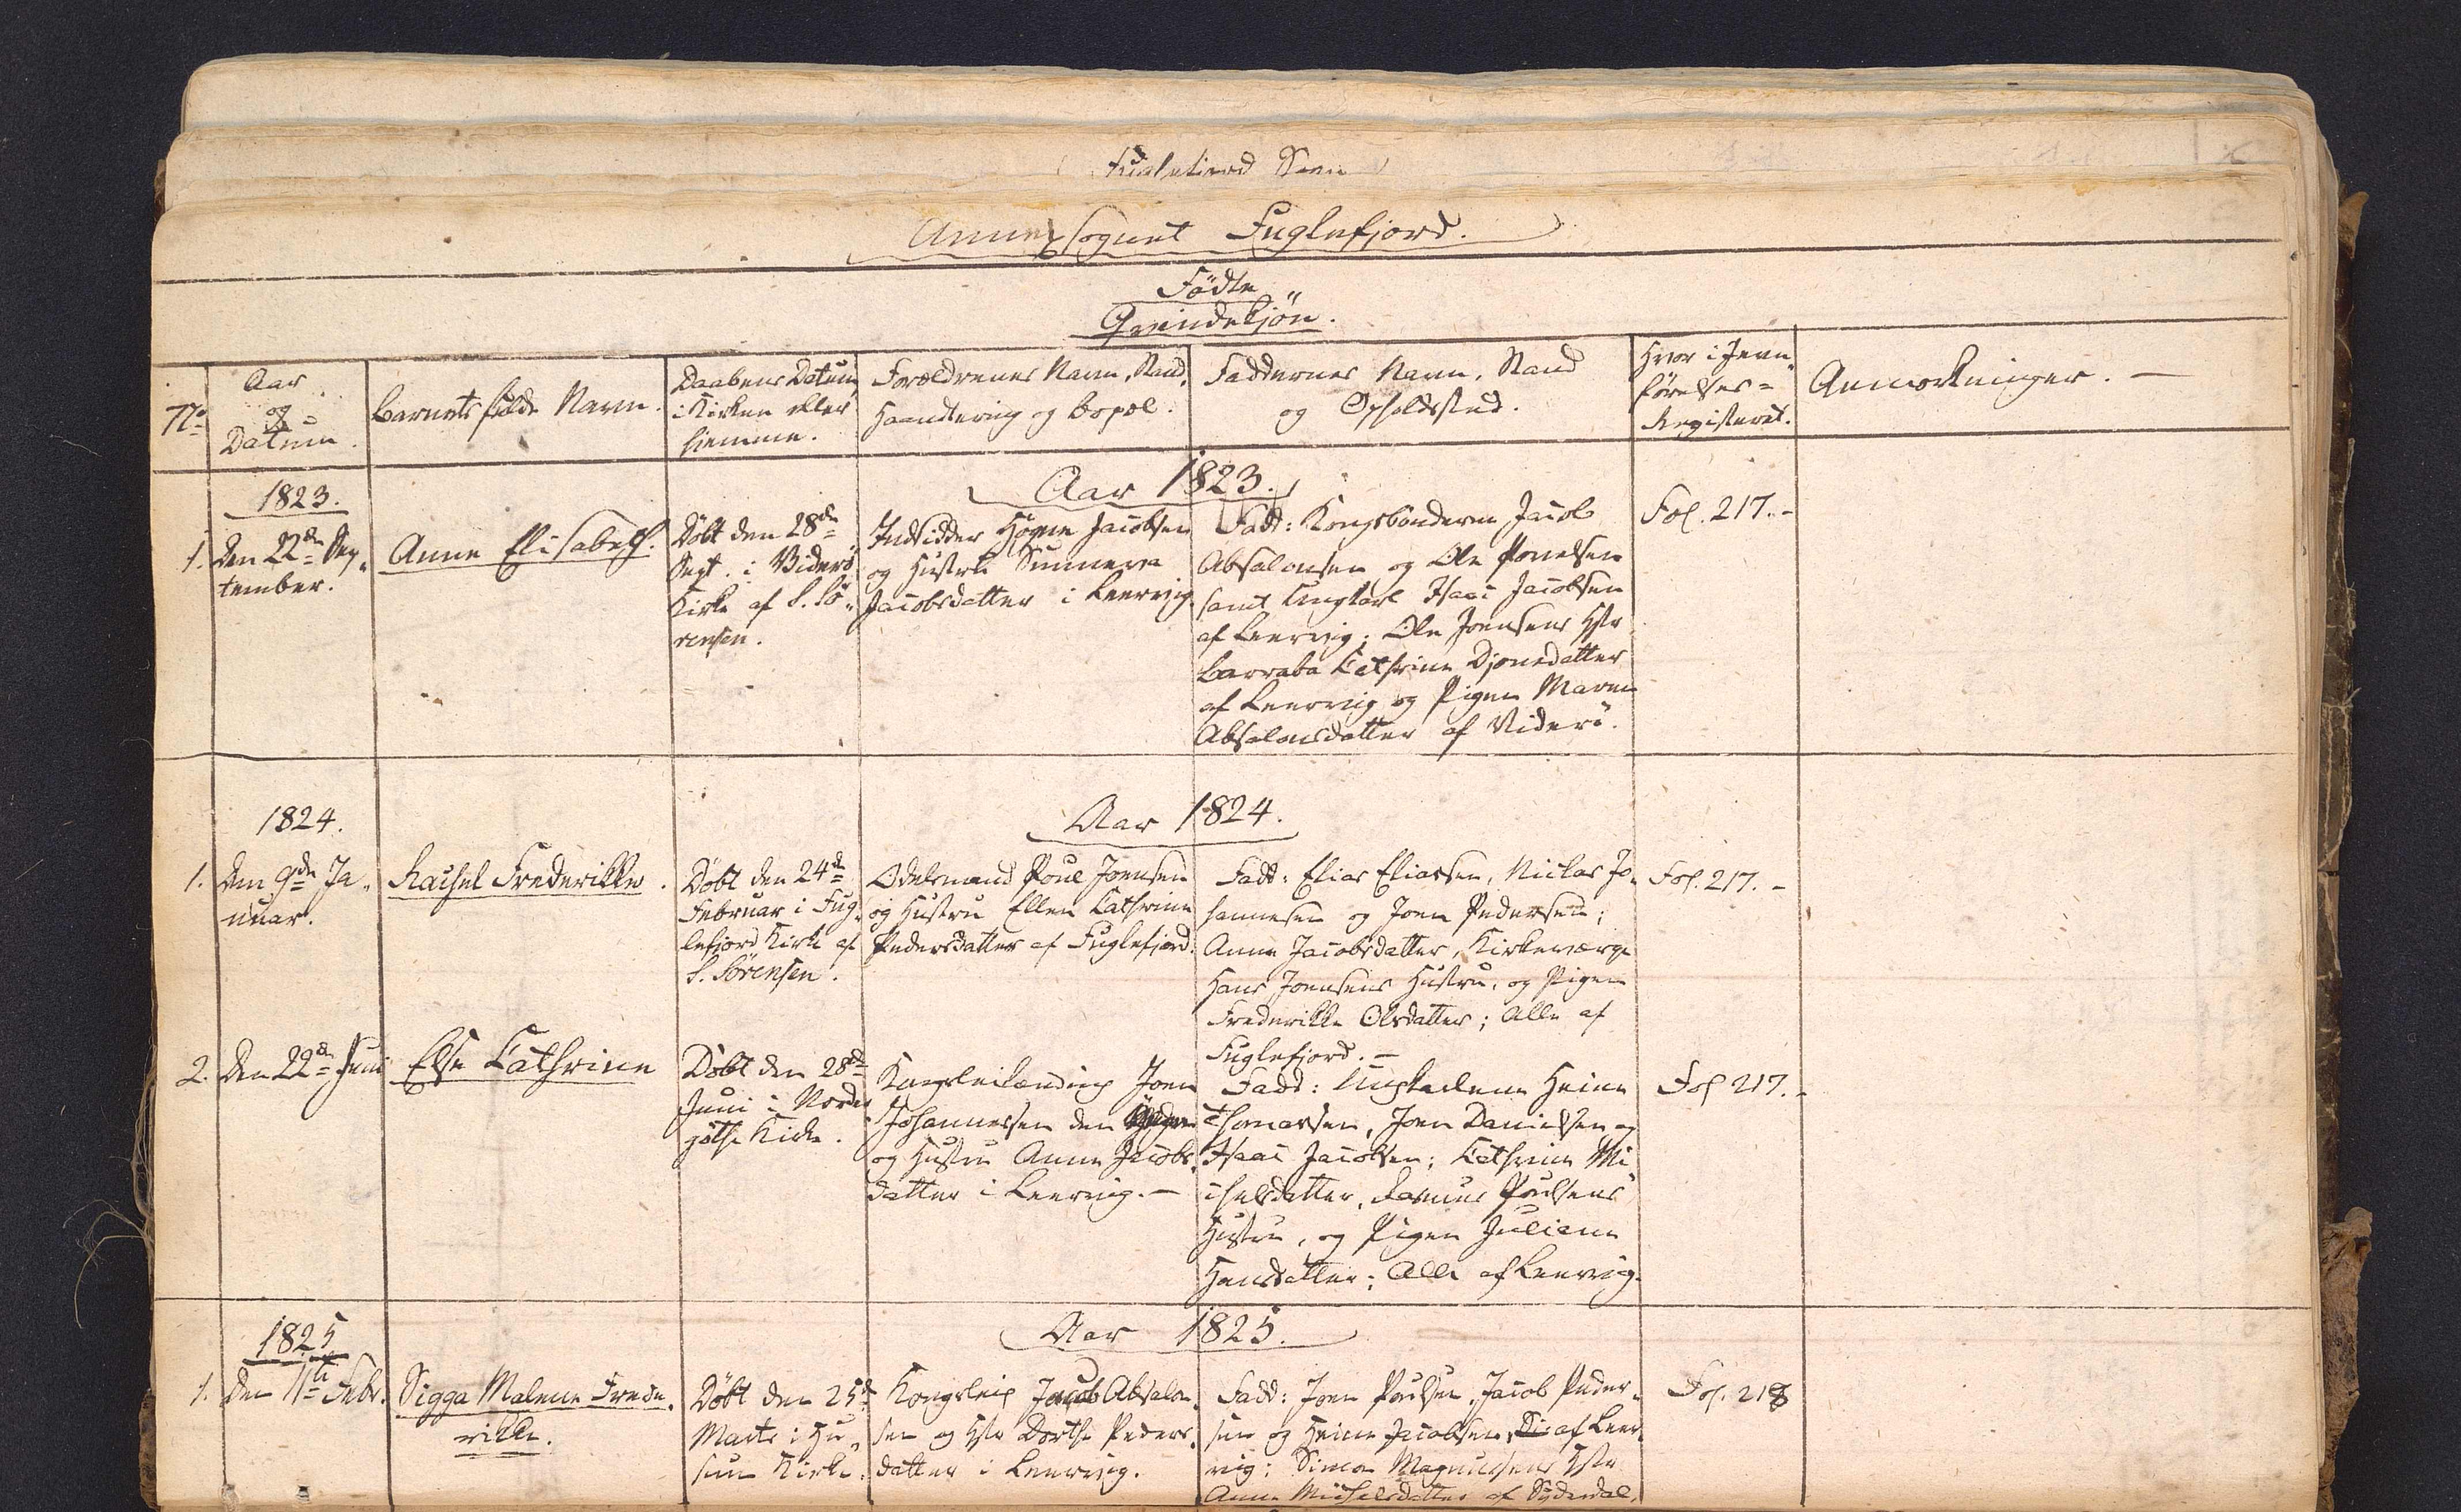 Fuglefiord Sogn
Annex sognet Fuglefjord.
Födte
Qvindekjön.
No
Aar
og
Datum.
Barnets fulde Navn.
Daabens Datum
i Kirken eller
hiemme.
Forældrenes Navn, Stand,
Haandtering og Bopæl.
Faddernes Navn, Stand
og Opholdssted.
Hvor i Jevn
förelses-
Registeret.
Anmærkninger. —
Aar 1823.
1823.
1.
den 22de Sep-
tember.
Anne Elisabeth.
Döbt den 28de
Sept. i Viderö
Kirke af S. Sö-
rensen.
Indsidder Högne Jacobsen
og Hustrü Sunneva
Jacobsdatter i Leervig
Fadd: Kongsbonderne Jacob
Absalonsen og Ole Joensen
samt Ungkarl Isaac Jacobsen
af Leervig; Ole Joensens Hstr
Barraba Cathrine Djonedatter
af Leervig og Pigen Maren
Absalonsdatter af Viderö.
Fol. 217. -
Aar 1824.
1824.
1.
den 9de Ja-
nuar.
Rachel Frederikke.
Döbt den 24de
Februar i Fug-
lefjord Kirke af
S. Sörensen.
Odelsmand Poul Joensen
og Hustru Ellen Cathrine
Pedersdatter af Fuglefjord.
Fadd: Elias Eliassen, Niclas Jo-
hannesen og Joen Pedersen;
Anne Jacobsdatter, Kirkeværge
Hans Joensens Hustru, og Pigen
Frederikke Olsdatter; Alle af
Fuglefjord. —
Fol. 217. -
2.
Den 22de Juni
Else Cathrine
Döbt den 28de
Juni i Norder
göthe Kirke.
Kongsleilænding Joen
Johannessen den
og Hustru Anne Jacobs-
datter i Leervig. —
Fadd: Ungkarlene Heine
Thomassen, Joen Danielsen og
Isaac Jacobsen; Cathrine Mi
chelsdatter, Rasmus Poulsens
Hustru, og Pigen Juliane
Hansdatter; Alle af Leervig.
Fol 217. -
Aar 1825.
1825
1.
Den 11te Febr.
Sigga Malene Frede-
rikke.
Döbt den 25de
Marts i Hu-
sum Kirke.
Kongsleil Jacob Absalon-
sen og Hstr Dorthe Peders-
datter i Leervig.
Fadd: Joen Poulsen, Jacob Peder-
sen og Heine Jacobsen, af Leer-
vig; Simon Magnussens Hstr
Anne Michelsdatter af Syderdal,
Fol. 218